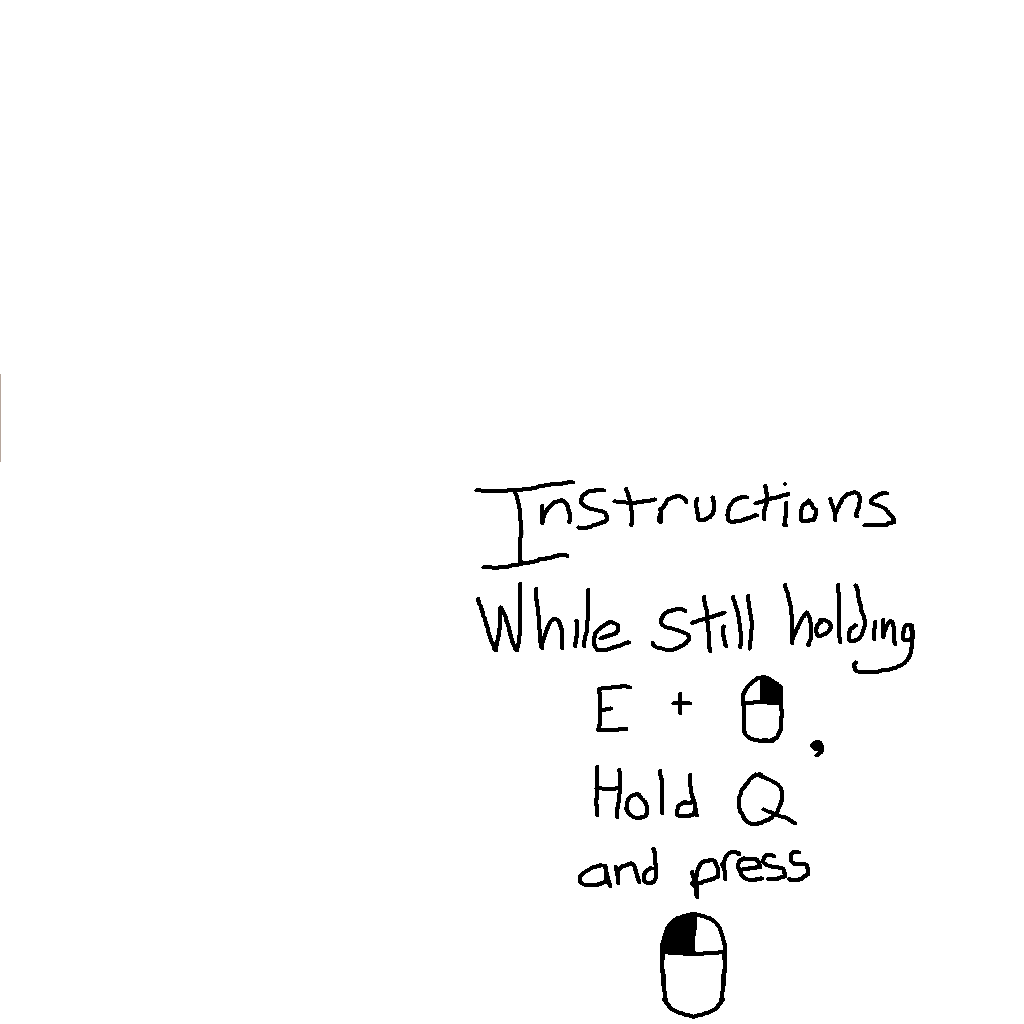 Instructions
While still holding
E + ,
Hold Q
and press